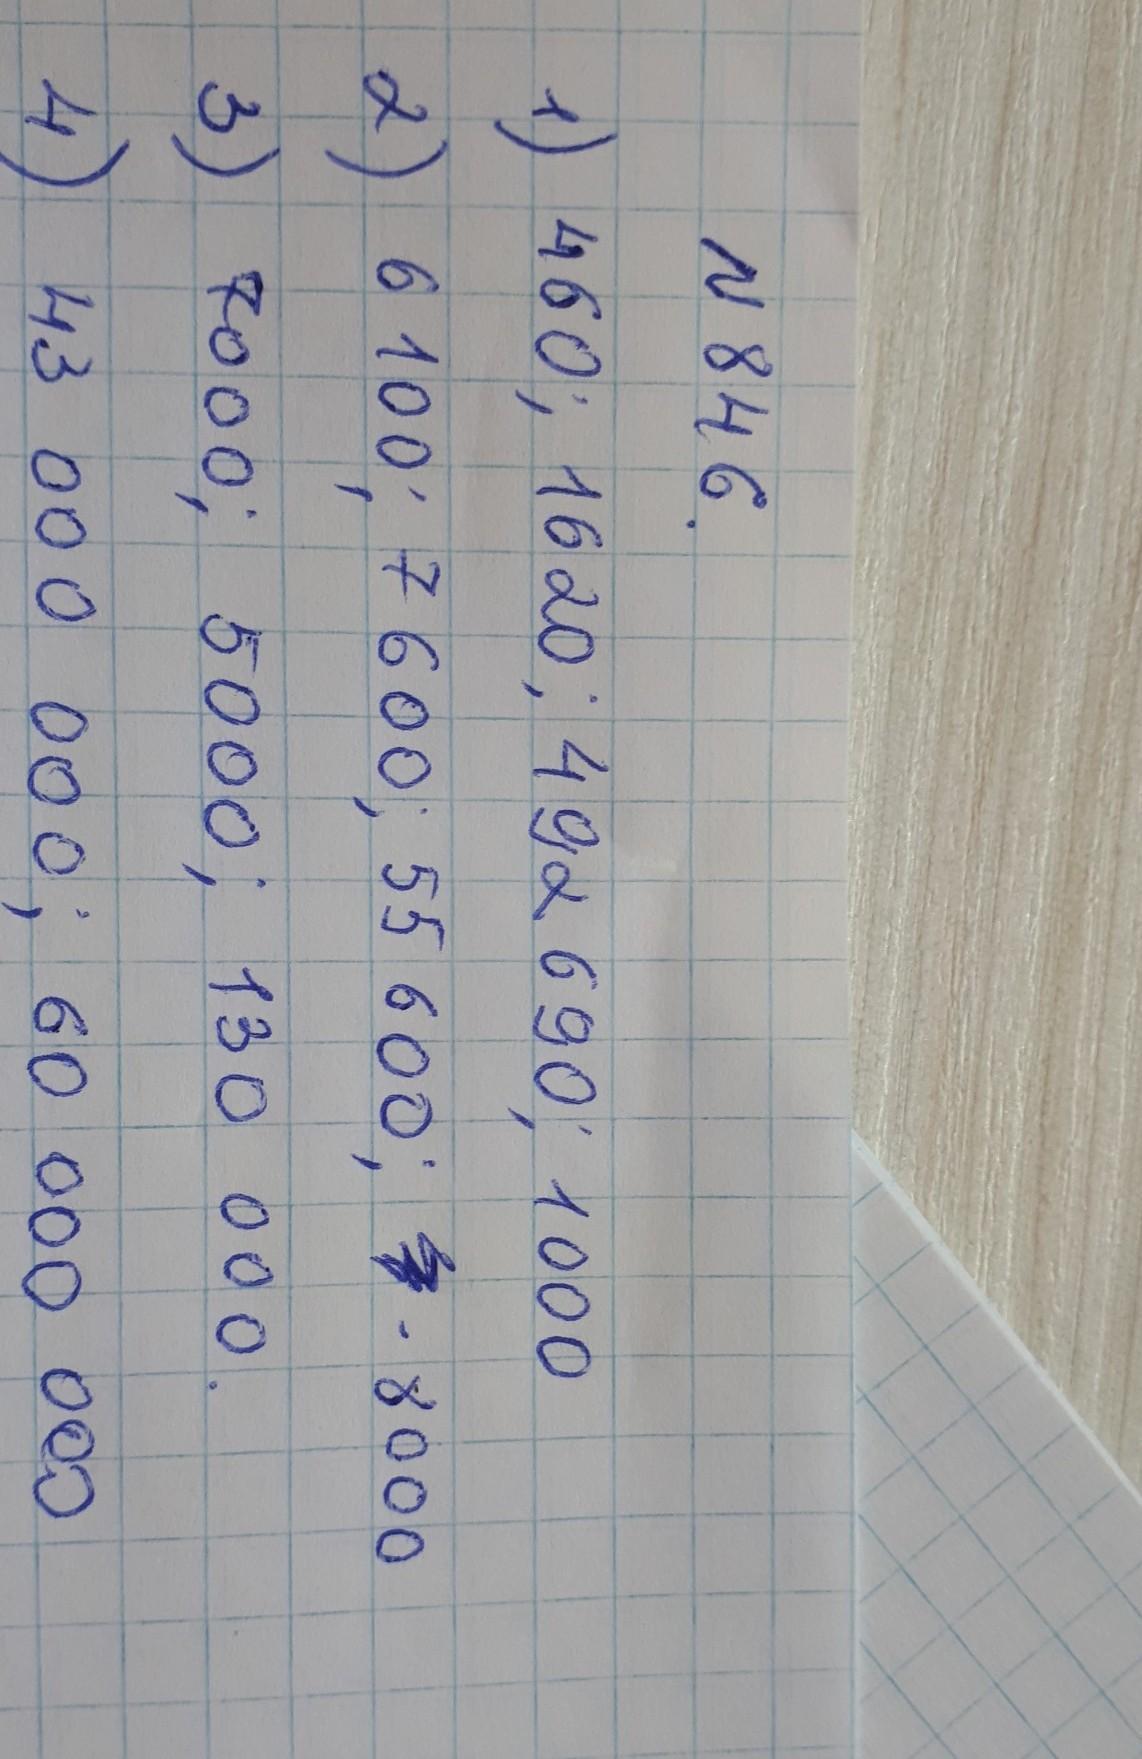 N 846.
1) 460; 1620; 492 690; 1000
2) 6 100; 7 600; 55 600; - 8000
3) 7000; 5000; 130 000.
4) 43 000 000; 60 000 000